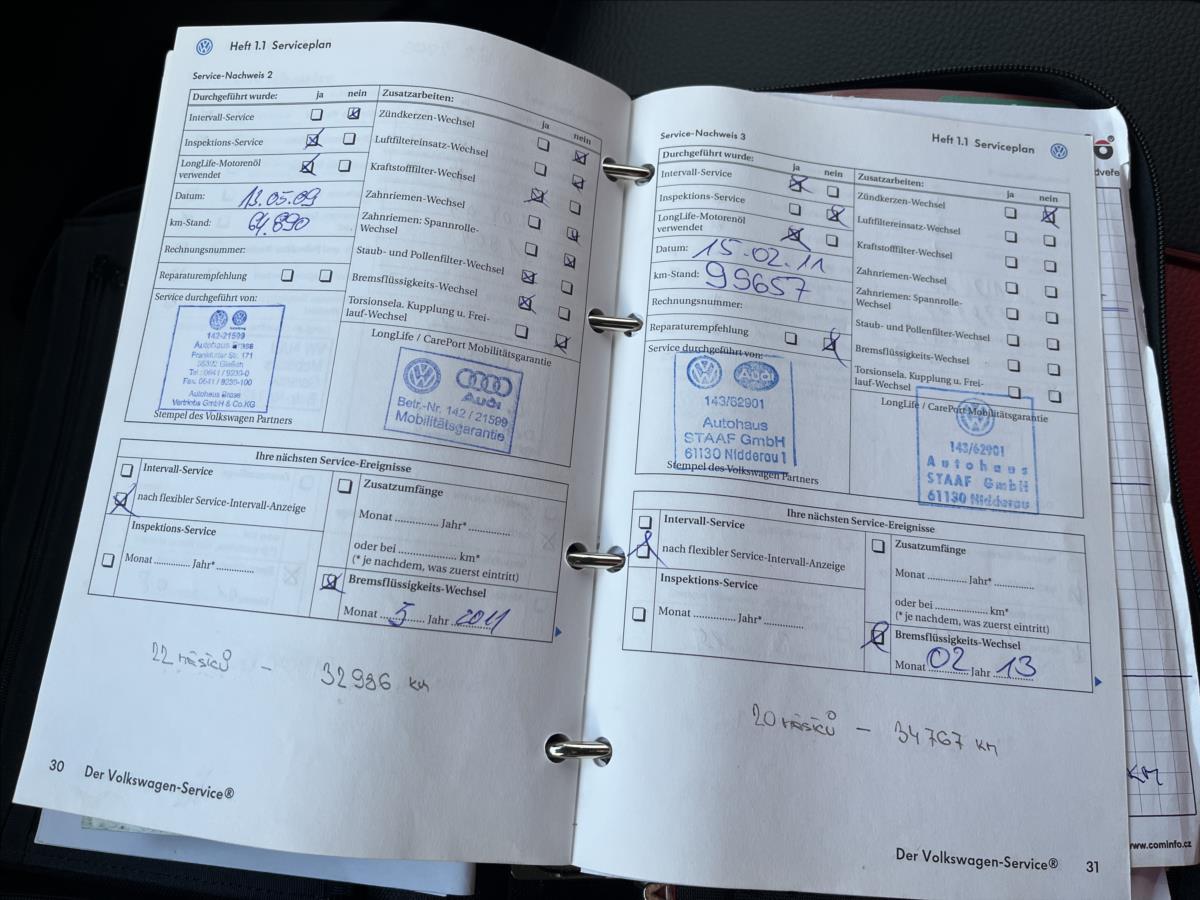 Heft 1.1 Serviceplan
Service-Nachweis 2
Durchgeführt wurde: ja nein
Intervall-Service
Inspektions-Service
LongLife-Motorenöl
verwendet
Datum: 13.05.09
km-Stand: 64.890
Rechnungsnummer:
Reparaturempfehlung
Service durchgeführt von:
142-21599
Autohaus
Frankfurter Str. 171
Tel.: 0641 / 9230-0
Fax: 0641 / 9230-100
Autohaus
Vertriebs GmbH & Co.KG
Stempel des Volkswagen Partners
Zusatzarbeiten: ja nein
Zündkerzen-Wechsel
Luftfiltereinsatz-Wechsel
Kraftstofffilter-Wechsel
Zahnriemen-Wechsel
Zahnriemen: Spannrolle-
Wechsel
Staub- und Pollenfilter-Wechsel
Bremsflüssigkeits-Wechsel
Torsionsela. Kupplung u. Frei-
lauf-Wechsel
LongLife / CarePort Mobilitätsgarantie
Audi
Betr.-Nr. 142 / 21599
Mobilitätsgarantie
Ihre nächsten Service-Ereignisse
Intervall-Service
nach flexibler Service-Intervall-Anzeige
Inspektions-Service
Monat .............. Jahr* ..............
Zusatzumfänge
Monat .............. Jahr* ..............
oder bei .................... km*
(* je nachdem, was zuerst eintritt)
Bremsflüssigkeits-Wechsel
Monat 5 Jahr 2011
22 měsíců – 32986 km
30 Der Volkswagen-Service®
Heft 1.1 Serviceplan
Service-Nachweis 3
Durchgeführt wurde: ja nein
Intervall-Service
Inspektions-Service
LongLife-Motorenöl
verwendet
Datum: 15.02.11
km-Stand: 99657
Rechnungsnummer:
Reparaturempfehlung
Service durchgeführt von:
Audi
143/62901
Autohaus
STAAF GmbH
61130 Nidderau 1
Stempel des Volkswagen Partners
Zusatzarbeiten: ja nein
Zündkerzen-Wechsel
Luftfiltereinsatz-Wechsel
Kraftstofffilter-Wechsel
Zahnriemen-Wechsel
Zahnriemen: Spannrolle-
Wechsel
Staub- und Pollenfilter-Wechsel
Bremsflüssigkeits-Wechsel
Torsionsela. Kupplung u. Frei-
lauf-Wechsel
LongLife / CarePort Mobilitätsgarantie
143/62901
Autohaus
STAAF GmbH
61130 Nidderau
Ihre nächsten Service-Ereignisse
Intervall-Service
nach flexibler Service-Intervall-Anzeige
Inspektions-Service
Monat .............. Jahr* ..............
Zusatzumfänge
Monat .............. Jahr* ..............
oder bei .................... km*
(* je nachdem, was zuerst eintritt)
Bremsflüssigkeits-Wechsel
Monat 02 Jahr 13
20 měsíců – 34767 km
Der Volkswagen-Service® 31
KM
www.cominfo.cz